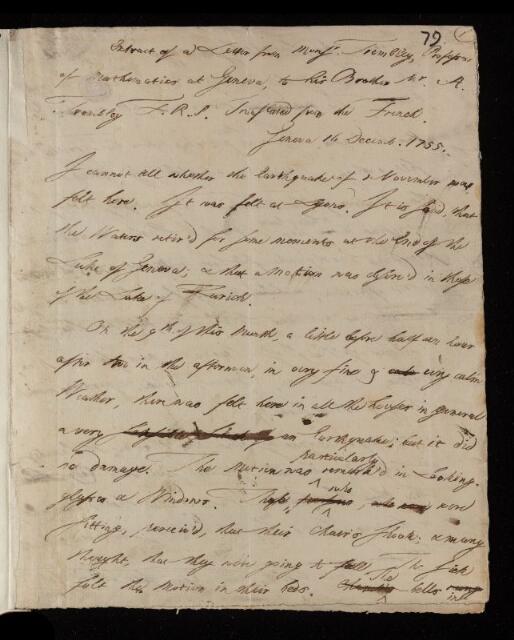 79
Extract of a Letter from Monsr. Trembley, Professor
of Mathematics at Geneva, to his Brother Mr. A.
Trembley F.R.S. Translated from the French.
Geneva 14 Decemb. 1755.
I cannot tell whether the Earthquake of 1 November was
felt here. It was felt at Lyons. It is said, that
the Waters retir'd for some moments at the End of the
Lake of Geneva, & that a Motion was observ'd in those
of the Lake of Zurich.
On the 9th of this Month, a little before half an hour
after two in the afternoon, in very fine & very calm
Weather, there was felt here in all the houses in general
a very an Earthquake; but it did
particularly
no damage. The Motion was remark'd in Looking-
who
glasses & Windows. Those were
sitting, perceiv'd, that their Chairs shook; & many
thought, that they were going to fall. The sick
felt the Motion in their beds. The bells